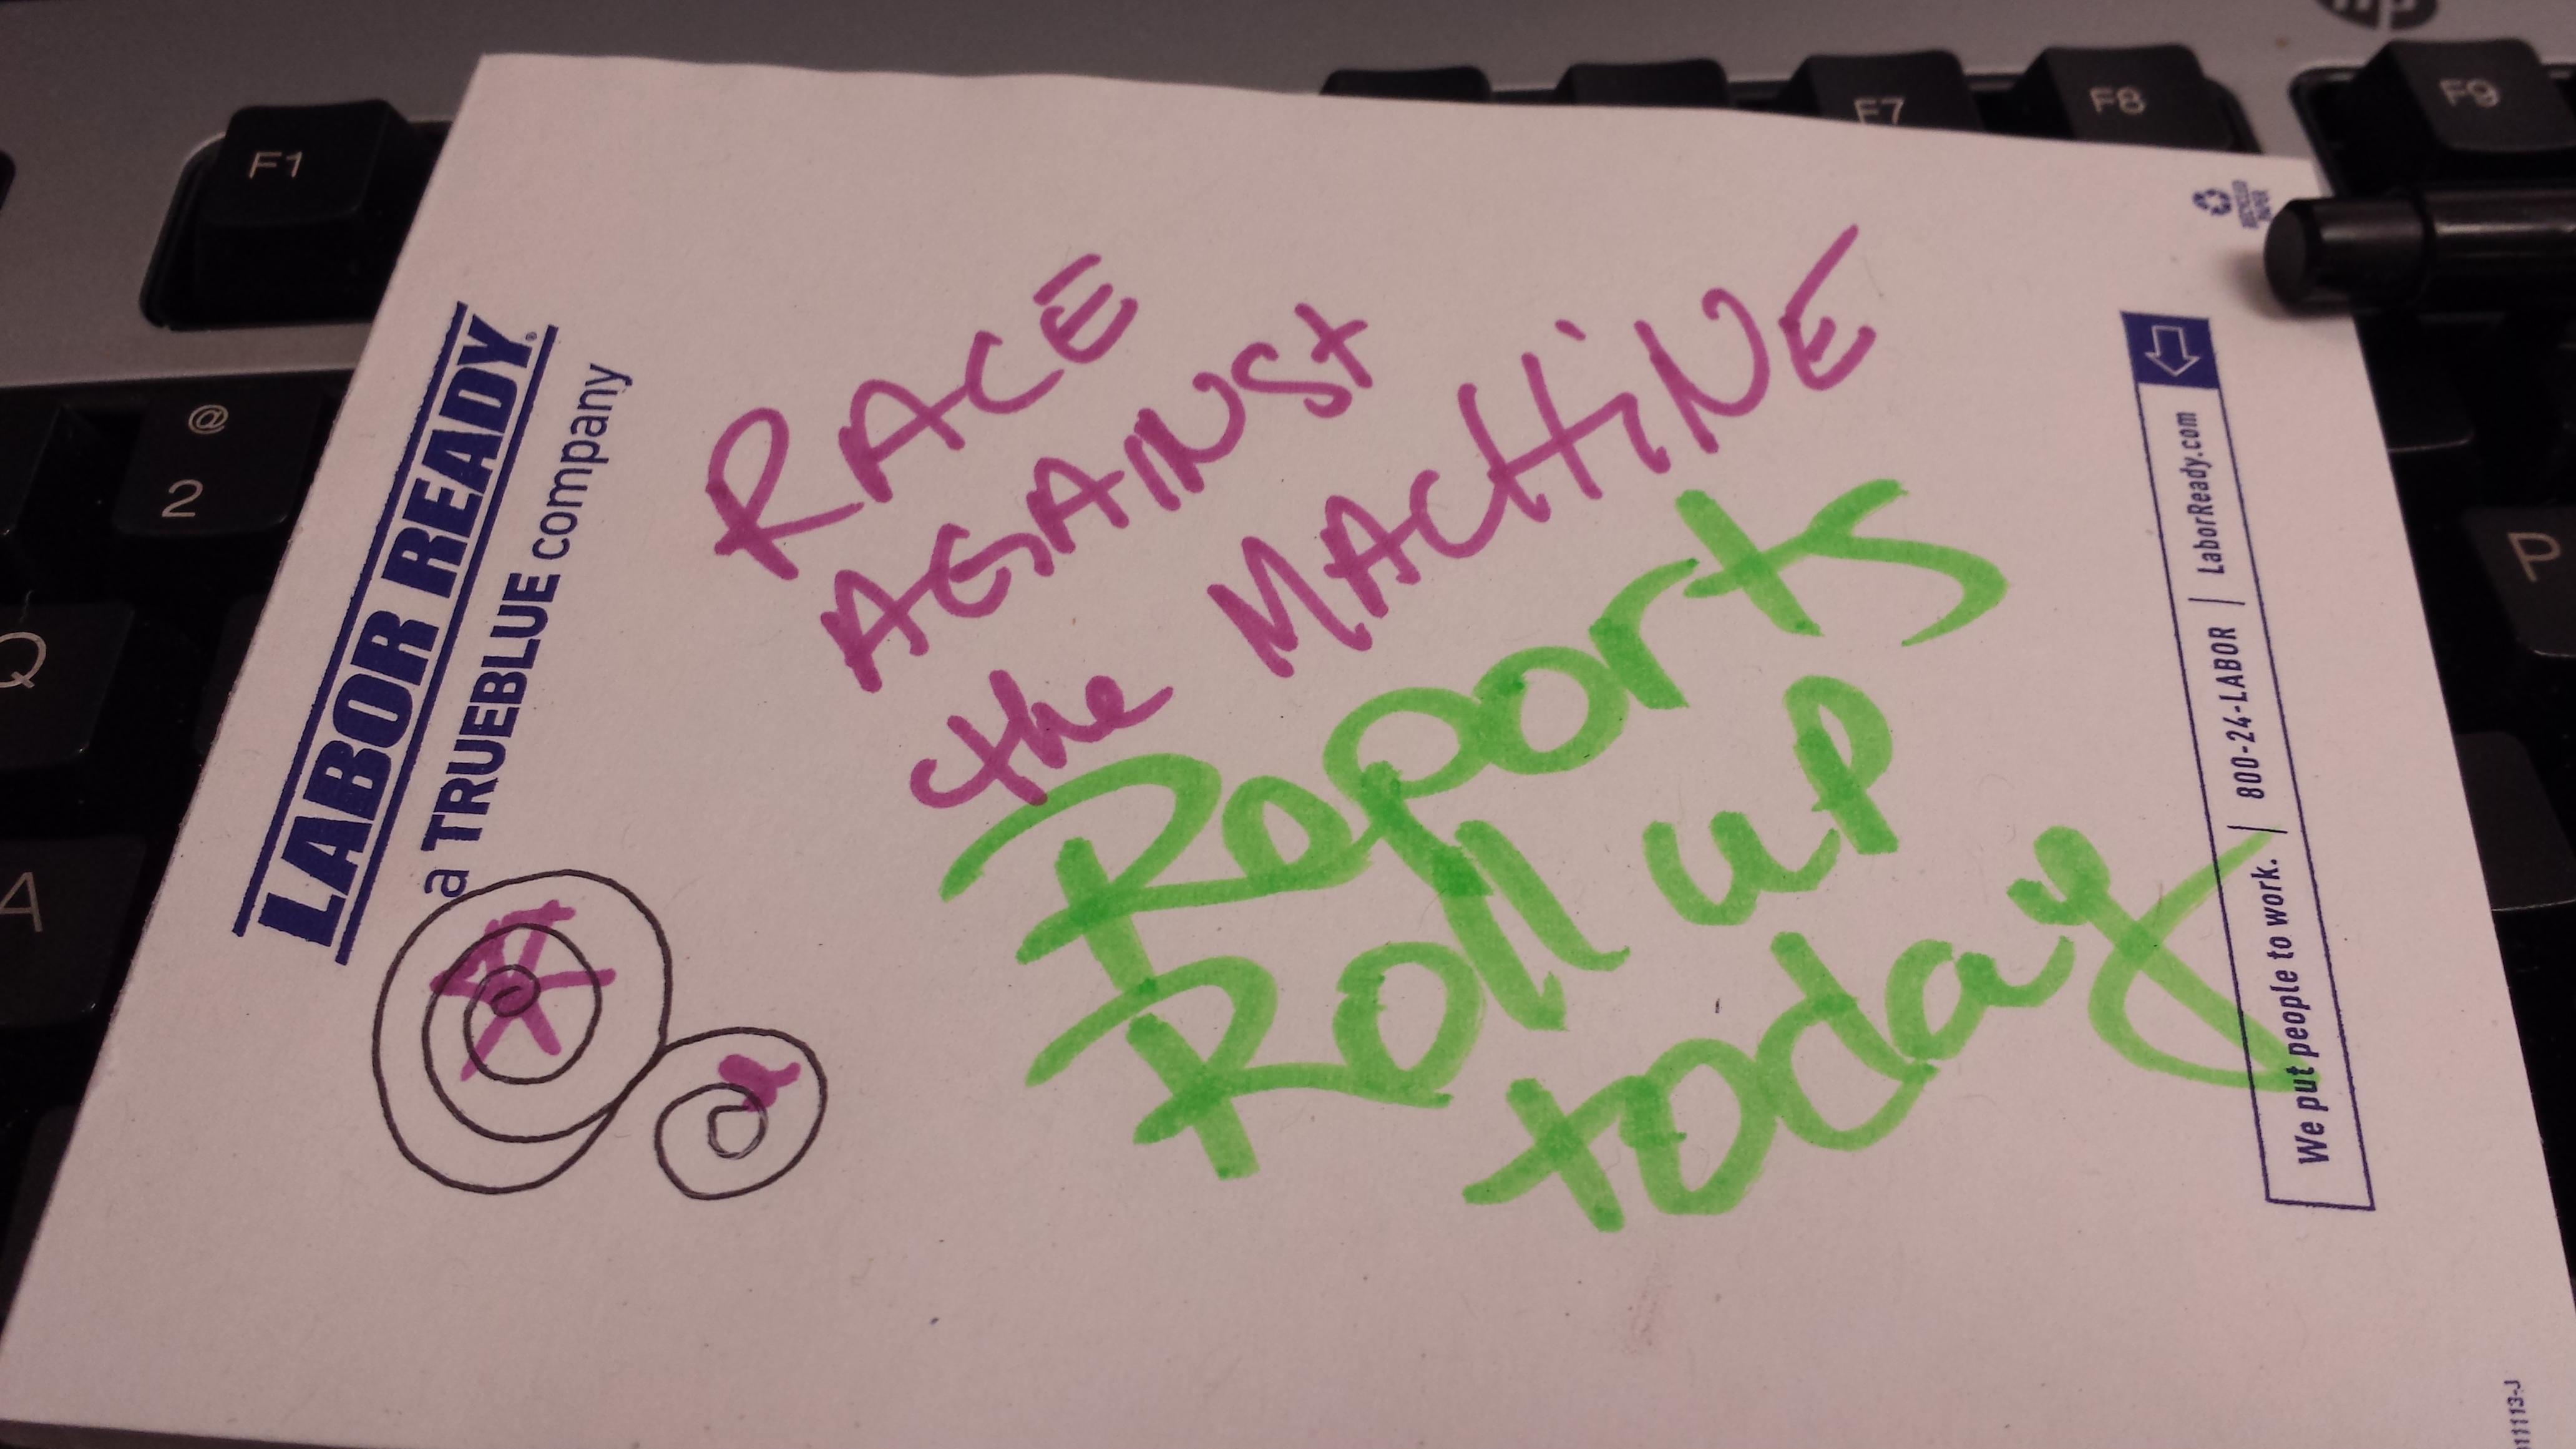 LABOR READY®
a TRUEBLUE company
RACE
AGAINST
the MACHiNE
Reports
Roll up
today
We put people to work. | 800-24-LABOR | LaborReady.com
RECYCLED
PAPER
11113-J
F1
F7
F8
F9
@
2
Q
A
P